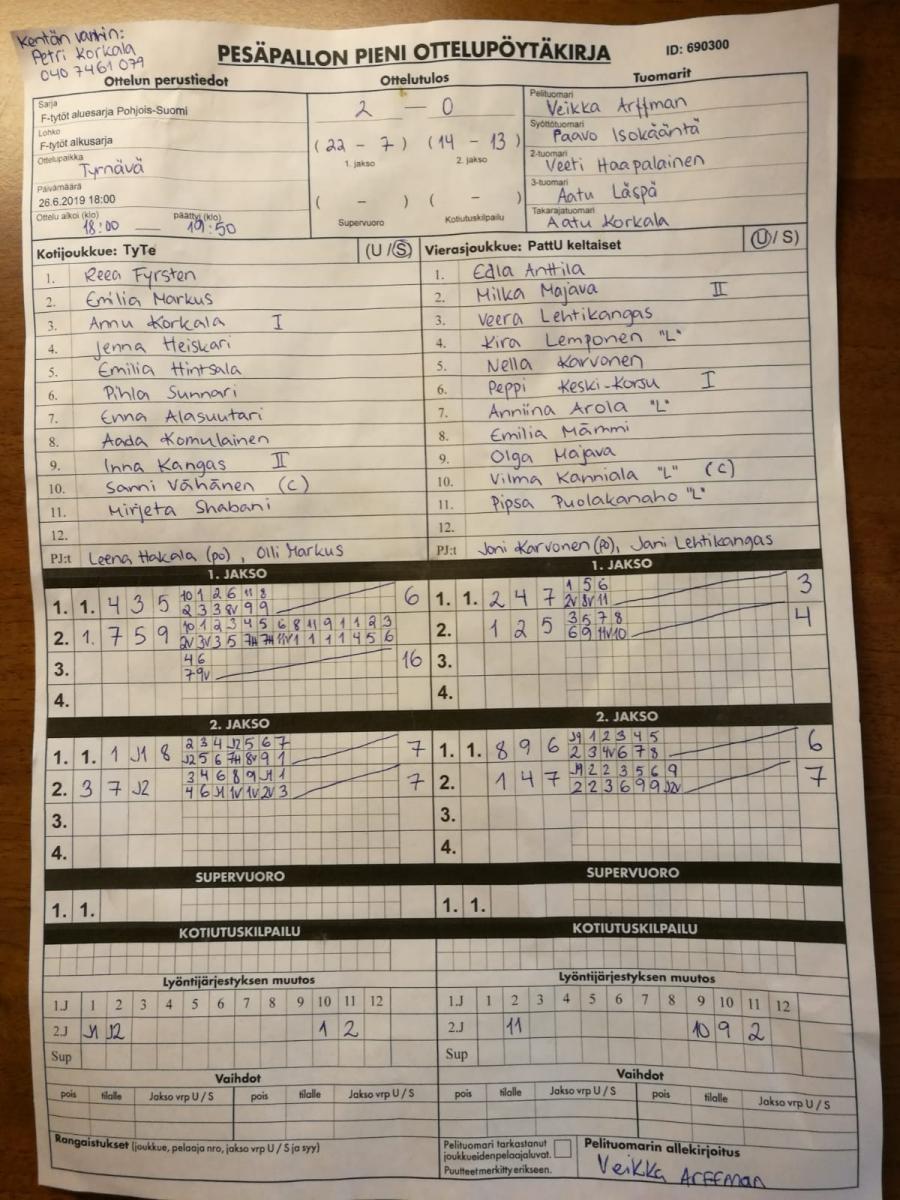 Kentän vanhin:
Petri Korkala
040 7461 079
PESÄPALLON PIENI OTTELUPÖYTÄKIRJA
ID: 690300
Ottelun perustiedot
Ottelutulos
Tuomarit
Sarja
F-tytöt aluesarja Pohjois-Suomi
Lohko
F-tytöt alkusarja
Ottelupaikka
Tyrnävä
Päivämäärä
26.6.2019 18:00
Ottelu alkoi (klo) päättyi (klo)
18:00 — 19:50
2 — 0
(22 - 7) (14 - 13)
1. jakso 2. jakso
( - ) ( - )
Supervuoro Kotiutuskilpailu
Pelituomari
Veikka Arffman
Syöttötuomari
Paavo Isokääntä
2-tuomari
Veeti Haapalainen
3-tuomari
Aatu Läspä
Takarajatuomari
Aatu Korkala
Kotijoukkue: TyTe (U / S)
1. Reea Fyrsten
2. Emilia Markus
3. Annu Korkala I
4. Jenna Heiskari
5. Emilia Hintsala
6. Pihla Sunnari
7. Enna Alasuutari
8. Aada Komulainen
9. Inna Kangas II
10. Sanni Vähänen (C)
11. Mirjeta Shabani
12.
PJ:t Leena Hakala (po), Olli Markus
Vierasjoukkue: PattU keltaiset (U / S)
1. Edla Anttila
2. Milka Majava II
3. Veera Lehtikangas
4. Kira Lemponen "L"
5. Nella Karvonen
6. Peppi Keski-Korsu I
7. Anniina Arola "L"
8. Emilia Mämmi
9. Olga Majava
10. Vilma Kanniala "L" (C)
11. Pipsa Puolakanaho "L"
12.
PJ:t Joni Karvonen (po), Jani Lehtikangas
1. JAKSO
1. 1. 4 3 5 10 1 2 6 11 8 6
2 3 3 8V 9 9
2. 1. 7 5 9 10 1 2 3 4 5 6 8 11 9 1 1 2 3
2V 3V 3 5 7H 7H 11V 1 1 1 1 4 5 6
3. 4 6 16
7 9V
4.
1. JAKSO
1. 1. 2 4 7 1 5 6 3
2V 8V 11
2. 1 2 5 3 5 7 8 4
6 9 11V 10
3.
4.
2. JAKSO
1. 1. 1 J1 8 2 3 4 J2 5 6 7 7
J2 5 6 7H 8V 9 1
2. 3 7 J2 3 4 6 8 9 J1 1 7
4 6 J1 1V 1V 2V 3
3.
4.
2. JAKSO
1. 1. 8 9 6 J9 1 2 3 4 5 6
2 3 4V 6 7 8
2. 1 4 7 J9 2 2 3 5 6 9 7
2 2 3 6 9 9 J2V
3.
4.
SUPERVUORO
1. 1.
SUPERVUORO
1. 1.
KOTIUTUSKILPAILU
KOTIUTUSKILPAILU
Lyöntijärjestyksen muutos
1.J 1 2 3 4 5 6 7 8 9 10 11 12
2.J J1 J2 1 2
Sup
Lyöntijärjestyksen muutos
1.J 1 2 3 4 5 6 7 8 9 10 11 12
2.J 11 10 9 2
Sup
Vaihdot
pois tilalle Jakso vrp U / S pois tilalle Jakso vrp U / S
Vaihdot
pois tilalle Jakso vrp U / S pois tilalle Jakso vrp U / S
Rangaistukset (joukkue, pelaaja nro, jakso vrp U / S ja syy)
Pelituomari tarkastanut
joukkueiden pelaajaluvat.
Puutteet merkitty erikseen.
Pelituomarin allekirjoitus
Veikka Arffman